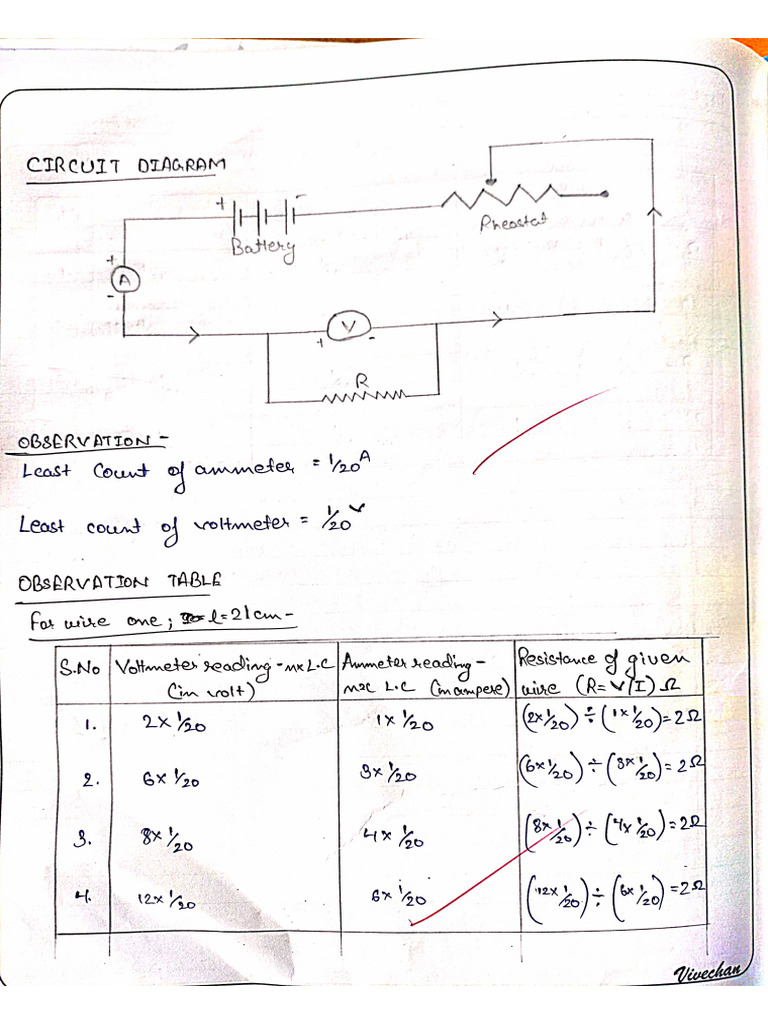 CIRCUIT DIAGRAM
+ -
Battery
Rheostat
+
A
-
V
+ -
R
OBSERVATION -
Least Count of ammeter = 1/20 A
Least count of voltmeter = 1/20 V
OBSERVATION TABLE
For wire one; l=21cm -
S.No Voltmeter reading - n×L.C (in volt) Ammeter reading - n×L.C (in ampere) Resistance of given wire (R=V/I) Ω
1. 2×1/20 1×1/20 (2×1/20)÷(1×1/20)=2Ω
2. 6×1/20 3×1/20 (6×1/20)÷(3×1/20)=2Ω
3. 8×1/20 4×1/20 (8×1/20)÷(4×1/20)=2Ω
4. 12×1/20 6×1/20 (12×1/20)÷(6×1/20)=2Ω
Vivechan